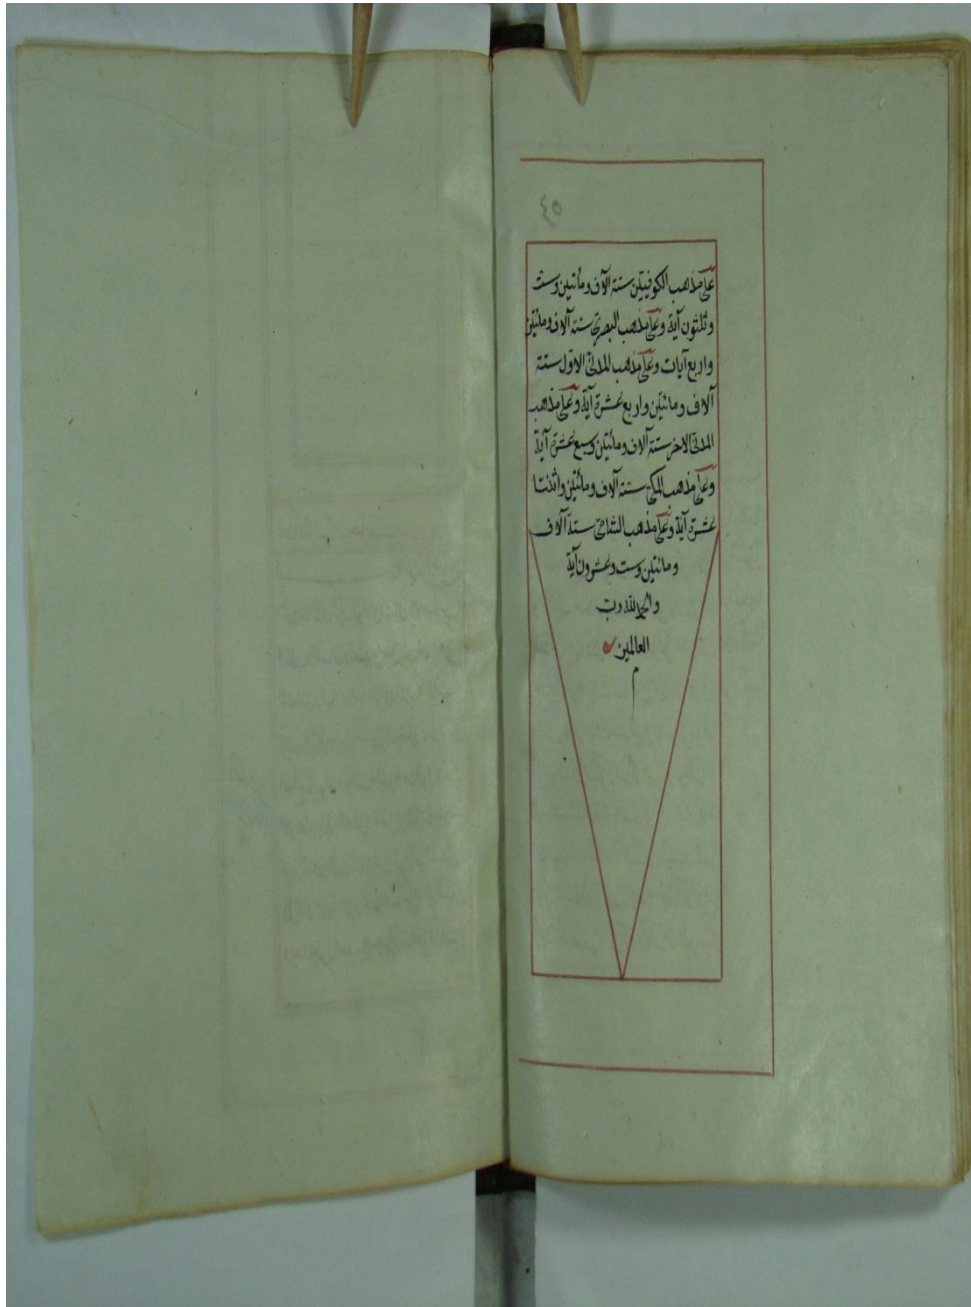 ٥٤
على مذهب الكوفيين ستة آلاف ومائتين وست
وثلثون آية وعلى مذهب البصرى ستة آلاف ومئتين
واربع آيات وعلى مذهب المدنى الاول ستة
آلاف ومائتين واربع عشرة آية وعلى مذهب
المدنى الاخر ستة آلاف ومائتين وسبع عشرة آية
وعلى مذهب المكى ستة آلاف ومائتين واثنتا
عشرة آية وعلى مذهب الشامى ستة آلاف
ومائتين وست وعشرون آية
والحمد لله رب
العالمين
م